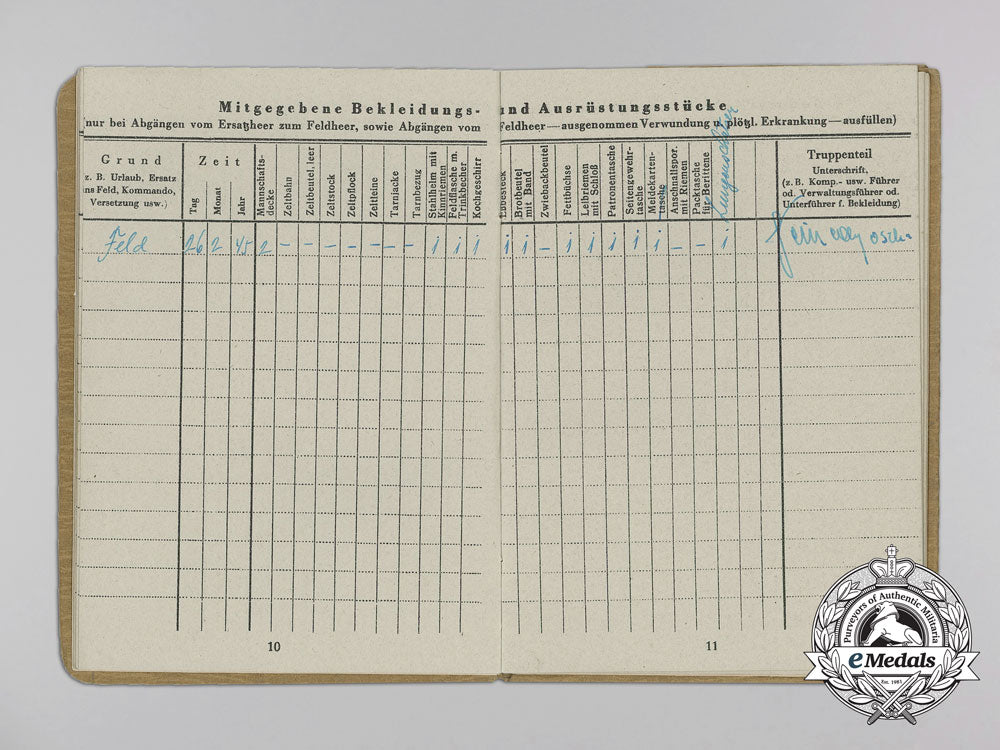 Mitgegebene Bekleidungs-
(nur bei Abgängen vom Ersatzheer zum Feldheer, sowie Abgängen vom
Grund
z. B. Urlaub, Ersatz
ins Feld, Kommando,
Versetzung usw.)
Zeit
Tag
Monat
Jahr
Mannschafts-
decke
Zeltbahn
Zeltbeutel, leer
Zeltstock
Zeltpflock
Zeltleine
Tarnjacke
Tarnbezug
Stahlhelm mit
Kinnriemen
Feldflasche m.
Trinkbecher
Kochgeschirr
Feld 26 2 45 2 – – – – – – – 1 1 1
10
und Ausrüstungsstücke
Feldheer — ausgenommen Verwundung u. plötzl. Erkrankung — ausfüllen)
Eßbesteck
Brotbeutel
mit Band
Zwiebackbeutel
Fettbüchse
Leibriemen
mit Schloß
Patronentasche
Seitengewehr-
tasche
Meldekarten-
tasche
Anschnallspor.
mit Riemen
Packtasche
für Berittene
Truppenteil
Unterschrift.
(z. B. Komp.- usw. Führer
od. Verwaltungsführer od.
Unterführer f. Bekleidung)
1 1 – 1 1 1 1 1 – – 1
11
Purveyors of Authentic Militaria
eMedals
Est. 1981